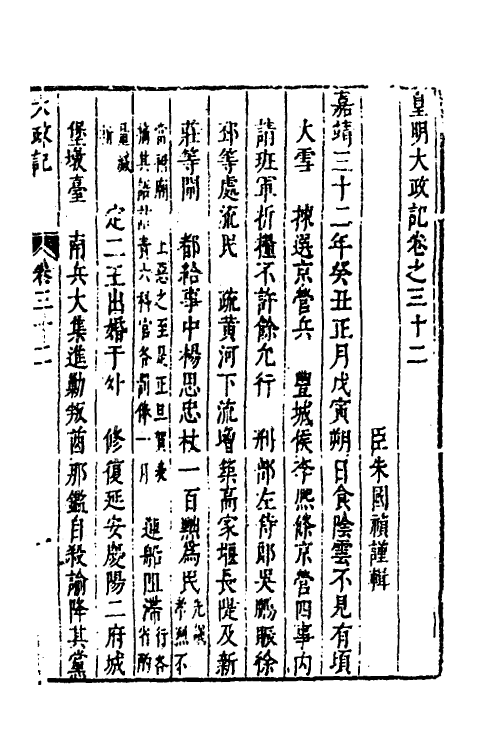 皇明大政記卷之三十二
臣朱國禎謹輯
嘉靖三十二年癸丑正月戊寅朔日食陰雲不見有頃
大雪　揀選京營兵　豐城侯李熙條京營四事內
請班軍折糧不許餘允行　刑部左侍郎吳鵬賑徐
邳等處流民　疏黃河下流增築高家堰長隄及新
莊等閘　都給事中楊思忠杖一百黜為民先議
孝烈不
當祔廟　上惡之至是正旦賀表
摘其語
六科官各罰俸一月　運船阻滯行各
省酌
量減
定二王出婚于外　修復延安慶陽二府城
堡墩臺　南兵大集進勦叛酋那鑑自殺諭降其黨
大政記
卷三十二
一